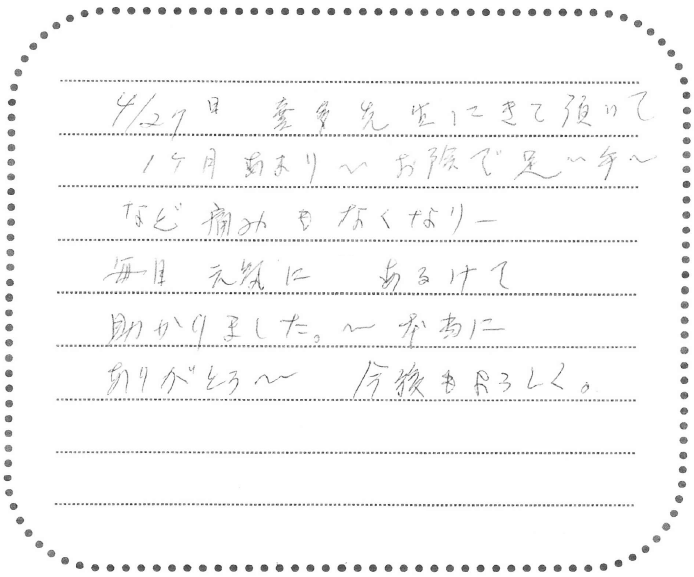 4/27日 喜多先生にきて頂いて
1ケ月あまり〜 お陰で足〜手〜
など痛みもなくなりー
毎日 元気に あるけて
助かりました。〜 本当に
ありがとう〜 今後もよろしく。